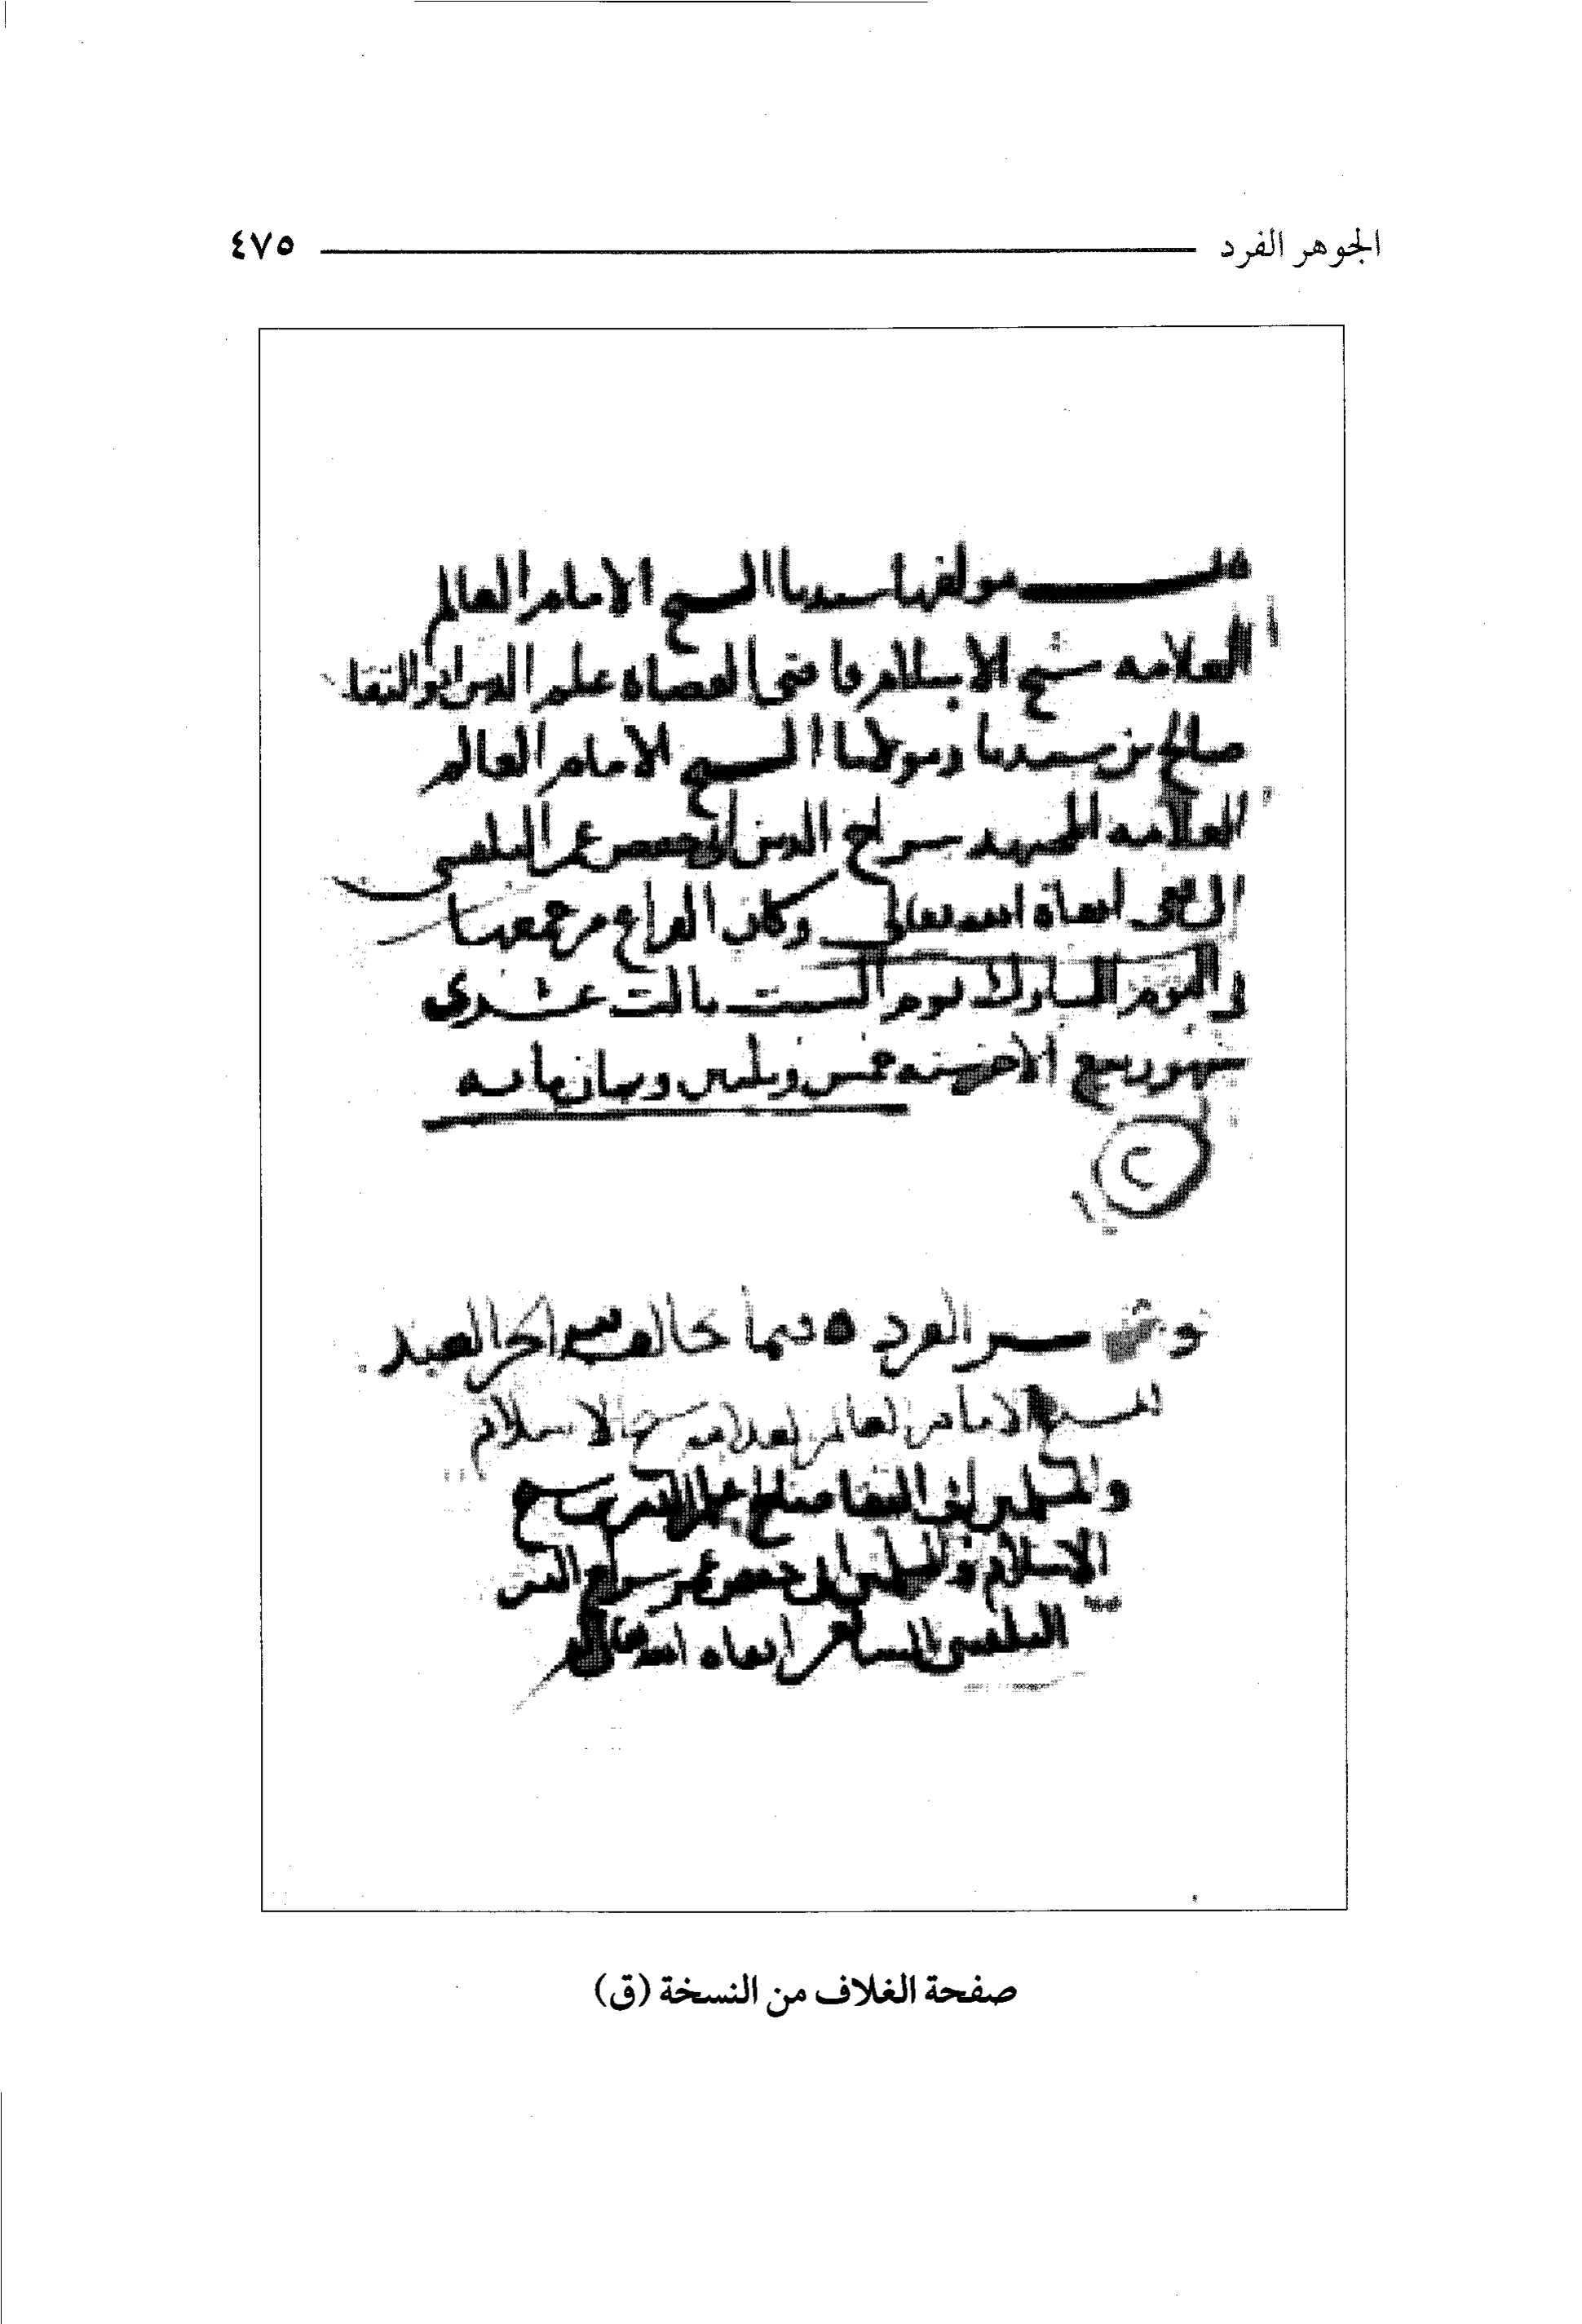 الجوهر الفرد ٤٧٥
مولفها سيدنا الشيخ الامام العالم
العلامه شيخ الاسلام قاضى القضاه علم الدين ابو التقا
صالح بن سيدنا ومولانا الشيخ الامام العالم
العلامه المجتهد سراج الدين ابى حفص عمر البلقينى
الشافعى ابقاه الله تعالى وكان الفراغ من جمعها
فى اليوم المبارك يوم السبت ثالث عشرى
شهر ربيع الاخر سنه خمس وثلثين وثمانمايه
الفرد فيما يخالف فيه الحر العبد
للشيخ الامام العالم العلامه شيخ الاسلام
والمسلمين ابى التقا صالح علم الدين بن شيخ
الاسلام والمسلمين ابى حفص عمر سراج الدين
البلقينى الشافعى ابقاه الله تعالى
صفحة الغلاف من النسخة (ق)